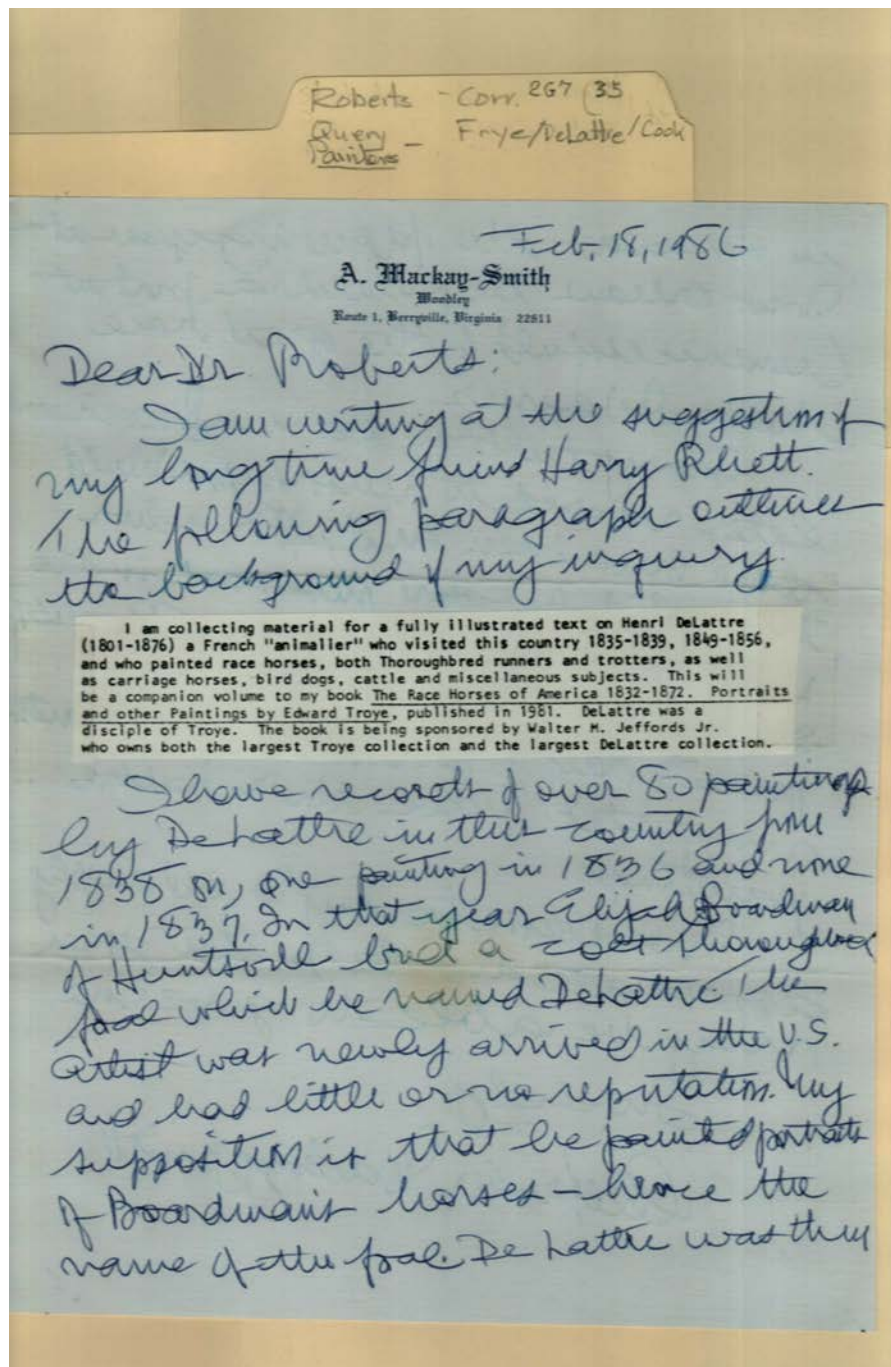 Roberts - Corr. 267 (35
Query - Frye/DeLattre/Cook
Painters
Feb. 18, 1986
A. Mackay-Smith
Woodley
Route 1, Berryville, Virginia 22611
Dear Dr Roberts:
I am writing at the suggestion of
my long time friend Harry Rhett.
The following paragraph outlines
the background of my inquiry.
I am collecting material for a fully illustrated text on Henri DeLattre
(1801-1876) a French "animalier" who visited this country 1835-1839, 1849-1856,
and who painted race horses, both Thoroughbred runners and trotters, as well
as carriage horses, bird dogs, cattle and miscellaneous subjects. This will
be a companion volume to my book The Race Horses of America 1832-1872. Portraits
and other Paintings by Edward Troye, published in 1981. DeLattre was a
disciple of Troye. The book is being sponsored by Walter M. Jeffords Jr.
who owns both the largest Troye collection and the largest DeLattre collection.
I have records of over 80 paintings
by DeLattre in this country from
1838 on, one painting in 1836 and none
in 1837. In that year Elijah Boardman
of Huntsville bred a colt thoroughbred
foal which he named DeLattre. The
artist was newly arrived in the U.S.
and had little or no reputation. My
supposition is that he painted portraits
of Boardman's horses - hence the
name of the foal. De Lattre was then